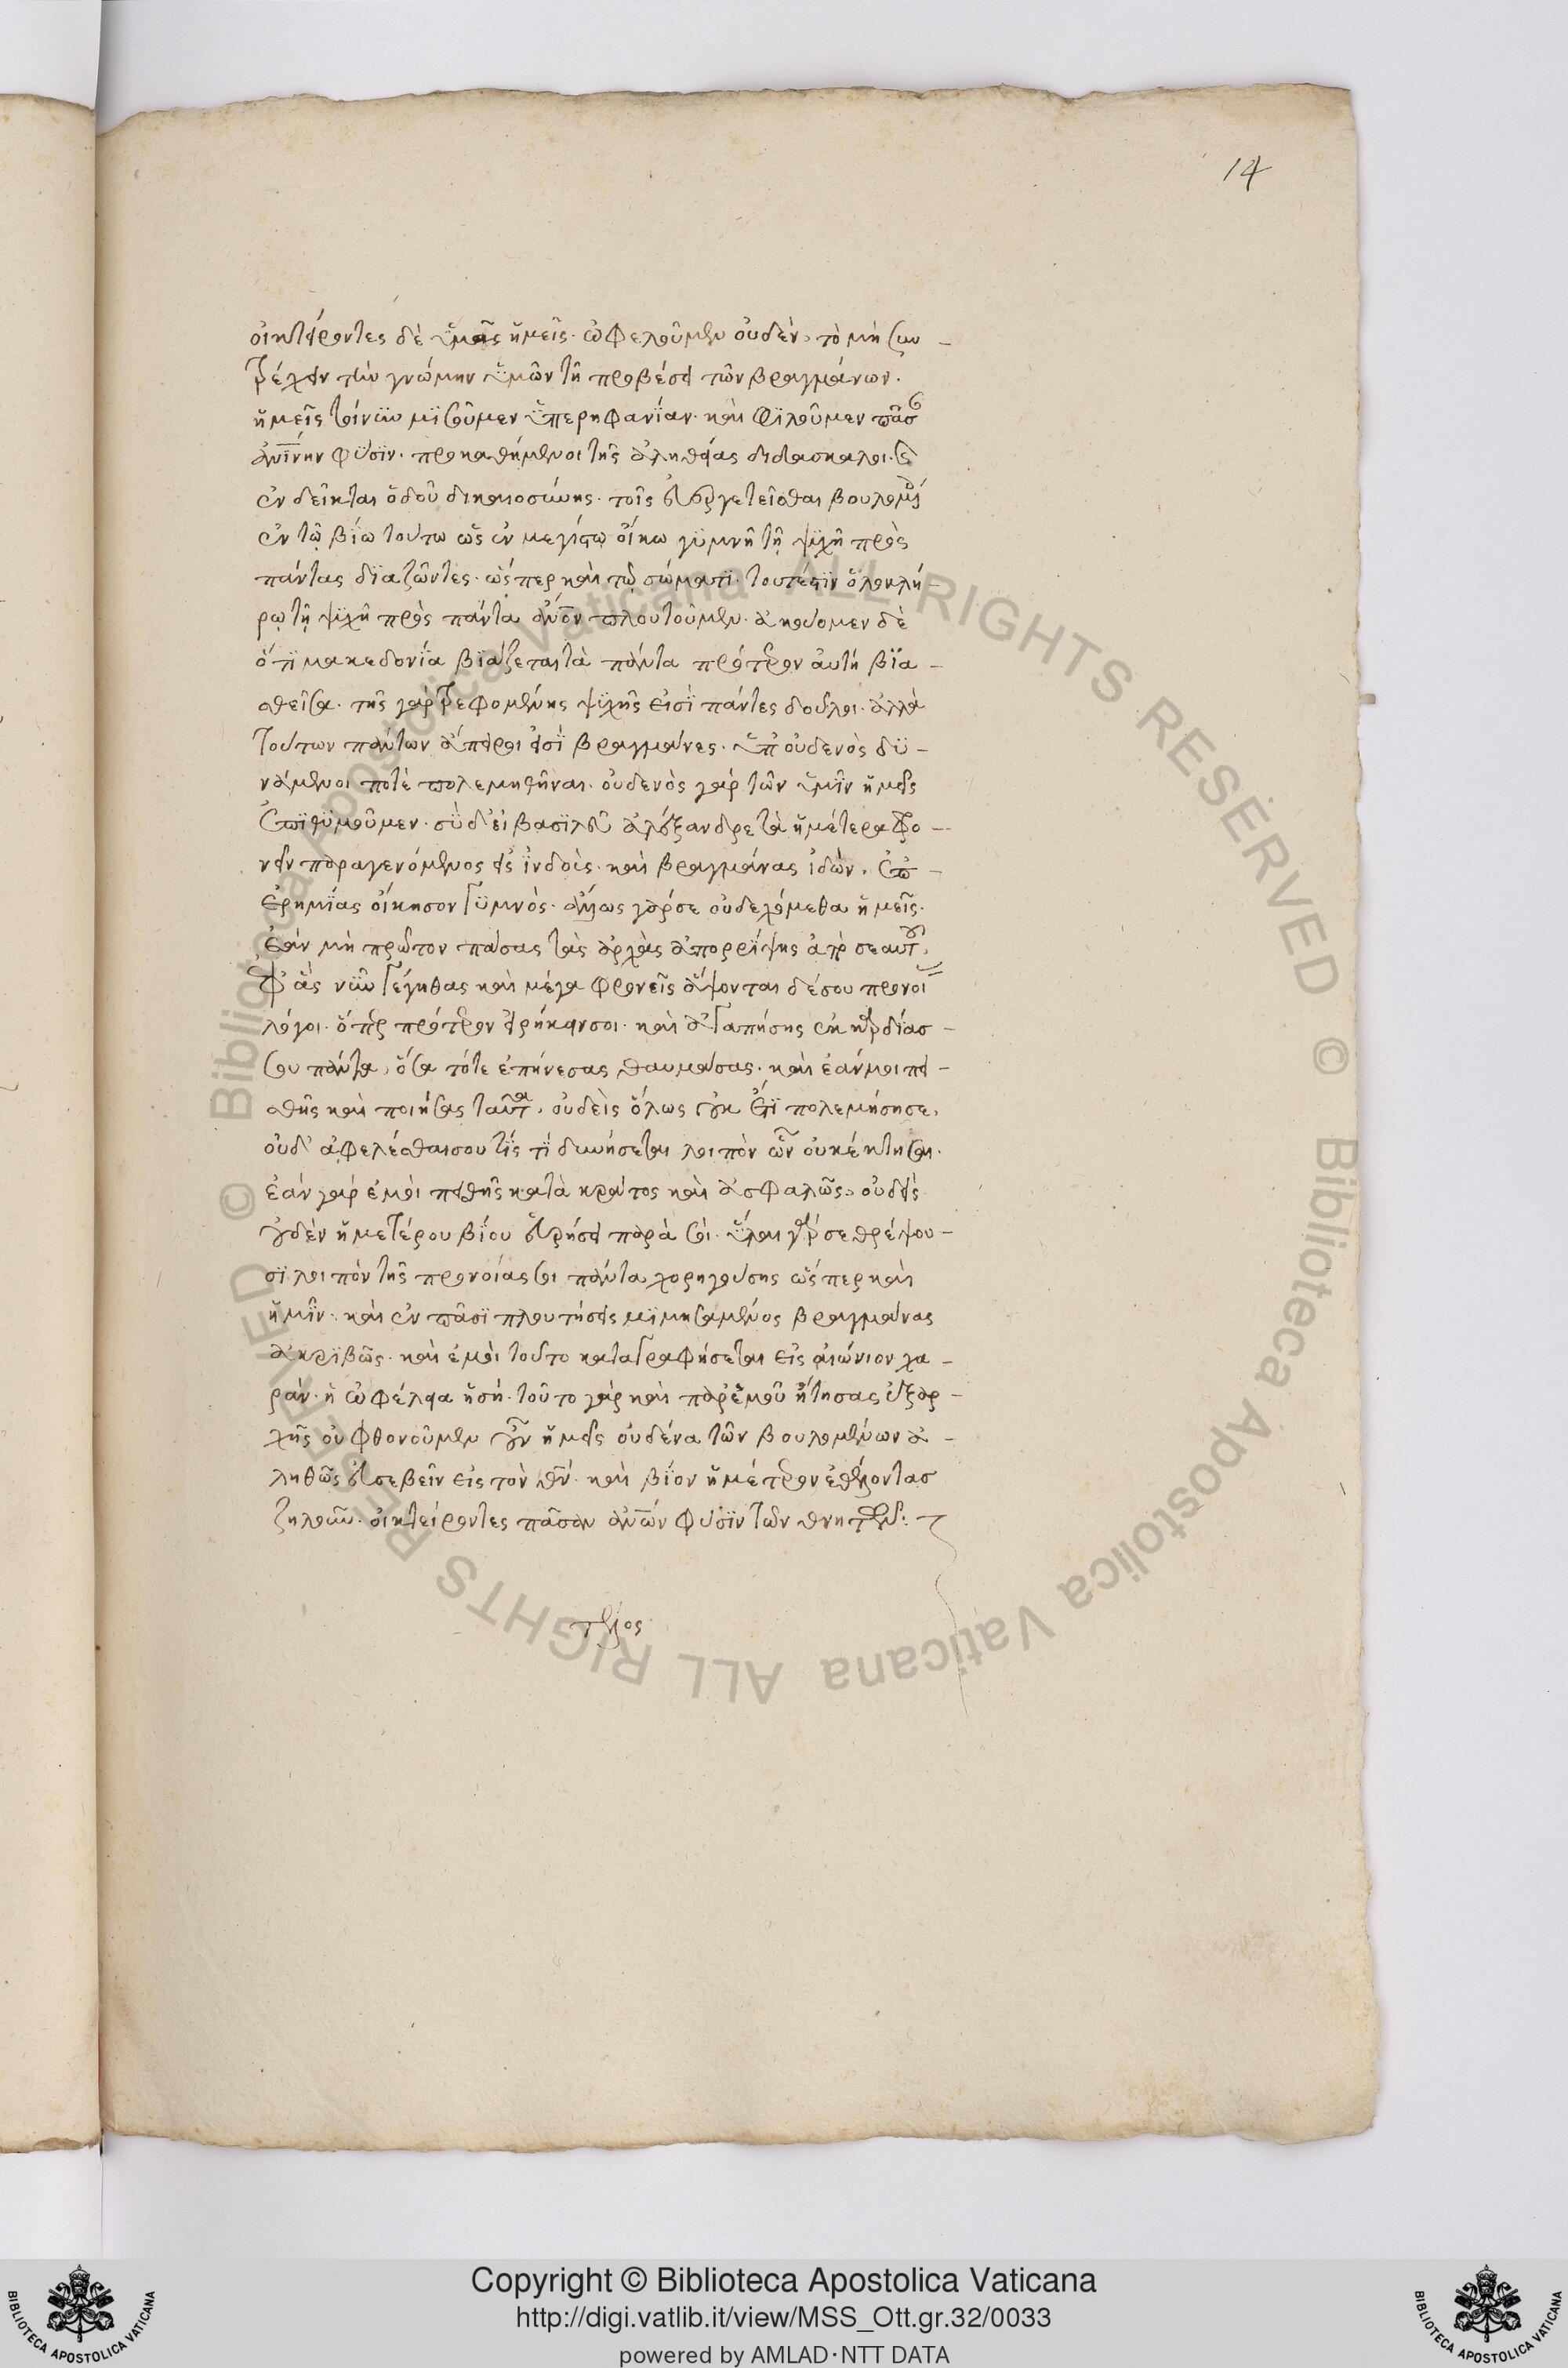 14
οἰκτείροντες δὲ ὑμᾶς ἡμεῖς· ὠφελοῦμεν οὐδέν, τὸ μὴ συν-
τρέχειν τὴν γνώμην ὑμῶν τῇ προθέσει τῶν βραγμάνων.
ἡμεῖς τοίνυν μισοῦμεν ὑπερηφανίαν· καὶ φιλοῦμεν πᾶσ
ἀνίνην φύσιν· προκαθήμενοι τῆς ἀληθείας διδάσκαλοι·
ἐνδεῖκται ὁδοῦ δικαιοσύνης· τοῖς εὐεργετεῖσθαι βουλομ
ἐν τῷ βίω τούτω ὡς ἐν μεγίστω οἴκω γυμνῇ τῇ ψυχῇ πρὸς
πάντας διαζῶντες· ὥσπερ καὶ τῷ σώματι· τουτέστιν ὁλοκλή-
ρῳ τῇ ψυχῇ πρὸς πάντα ἀνὸν πλουτοῦμεν· ἀκούομεν δὲ
ὅτι μακεδονία βιάζεται τὰ πάντα πρότερον αὐτὴ βια-
σθεῖσα· τῆς γὰρ τρεφομένης ψυχῆς εἰσὶ πάντες δοῦλοι· ἀλλὰ
τούτων πάντων ἄπειροι εἰσὶ βραγμάνες· ὑπ οὐδενὸς δυ-
νάμενοι ποτὲ πολεμηθῆναι· οὐδενὸς γὰρ τῶν ὑμῖν ἡμεῖς
ἐπιθυμοῦμεν· σὺ δ εἰ βασιλεῦ ἀλέξανδρε τὰ ἡμέτερα φρο-
νεῖν παραγενόμενος εἰς ἰνδοὺς· καὶ βραγμάνας ἰδὼν· ἐπ-
ἐρημίας οἴκησον γυμνὸς· ἄλλως γάρ σε οὐ δεχόμεθα ἡμεῖς·
ἐὰν μὴ πρῶτον πάσας τὰς ἀρχὰς ἀπορρίψης ἀπὸ σεαυτ,
ἐφ ἃς νῦν γέγηθας καὶ μέγα φρονεῖς ἅψονται δέ σου προνοί
λόγοι· ὅπερ πρότερον εἰρήκειν σοι· καὶ ἀγαπήσης ἐκ καρδίασ-
σου πάντα, ὅσα τότε ἐπήνεσας θαυμάσας· καὶ ἐάν μοι πει-
σθῆς καὶ ποιήσας ταῦτα, οὐδεὶς ὅλως οὐκ ἔτι πολεμήση σε,
οὐδ ἀφελέσθαι σου τίς τί δυνήσεται λοιπὸν ὧν οὐ κέκτησαι.
ἐὰν γὰρ ἐμοὶ πεισθῆς κατὰ κράτος καὶ ἀσφαλῶς, οὐδεὶς
οὐδὲν ἡμετέρου βίου εὑρήσει παρὰ σοί· ὗλαι γάρ σε θρέψου-
σι λοιπὸν τῆς προνοίας σοι πάντα χορηγούσης ὥσπερ καὶ
ἡμῖν· καὶ ἐν πᾶσι πλουτήσεις μιμησαμένος βραγμάνας
ἀκριβῶς· καὶ ἐμοὶ τοῦτο καταγραφήσεται εἰς αἰώνιον χα-
ράν· ἡ ὠφέλεια ἡ σή· τοῦτο γὰρ καὶ παρ ἐμοῦ ᾔτησας ἐξ ἀρ-
χῆς οὐ φθονοῦμεν οὖν ἡμεῖς οὐδένα τῶν βουλομένων ἀ-
ληθῶς εὐσεβεῖν εἰς τὸν θν· καὶ βίον ἡμέτερον ἐθέλοντασ
ζηλοῦν· οἰκτείροντες πᾶσαν ἀνων φύσιν τῶν θνητῶν:
τέλος
Copyright © Biblioteca Apostolica Vaticana
http://digi.vatlib.it/view/MSS_Ott.gr.32/0033
powered by AMLAD·NTT DATA